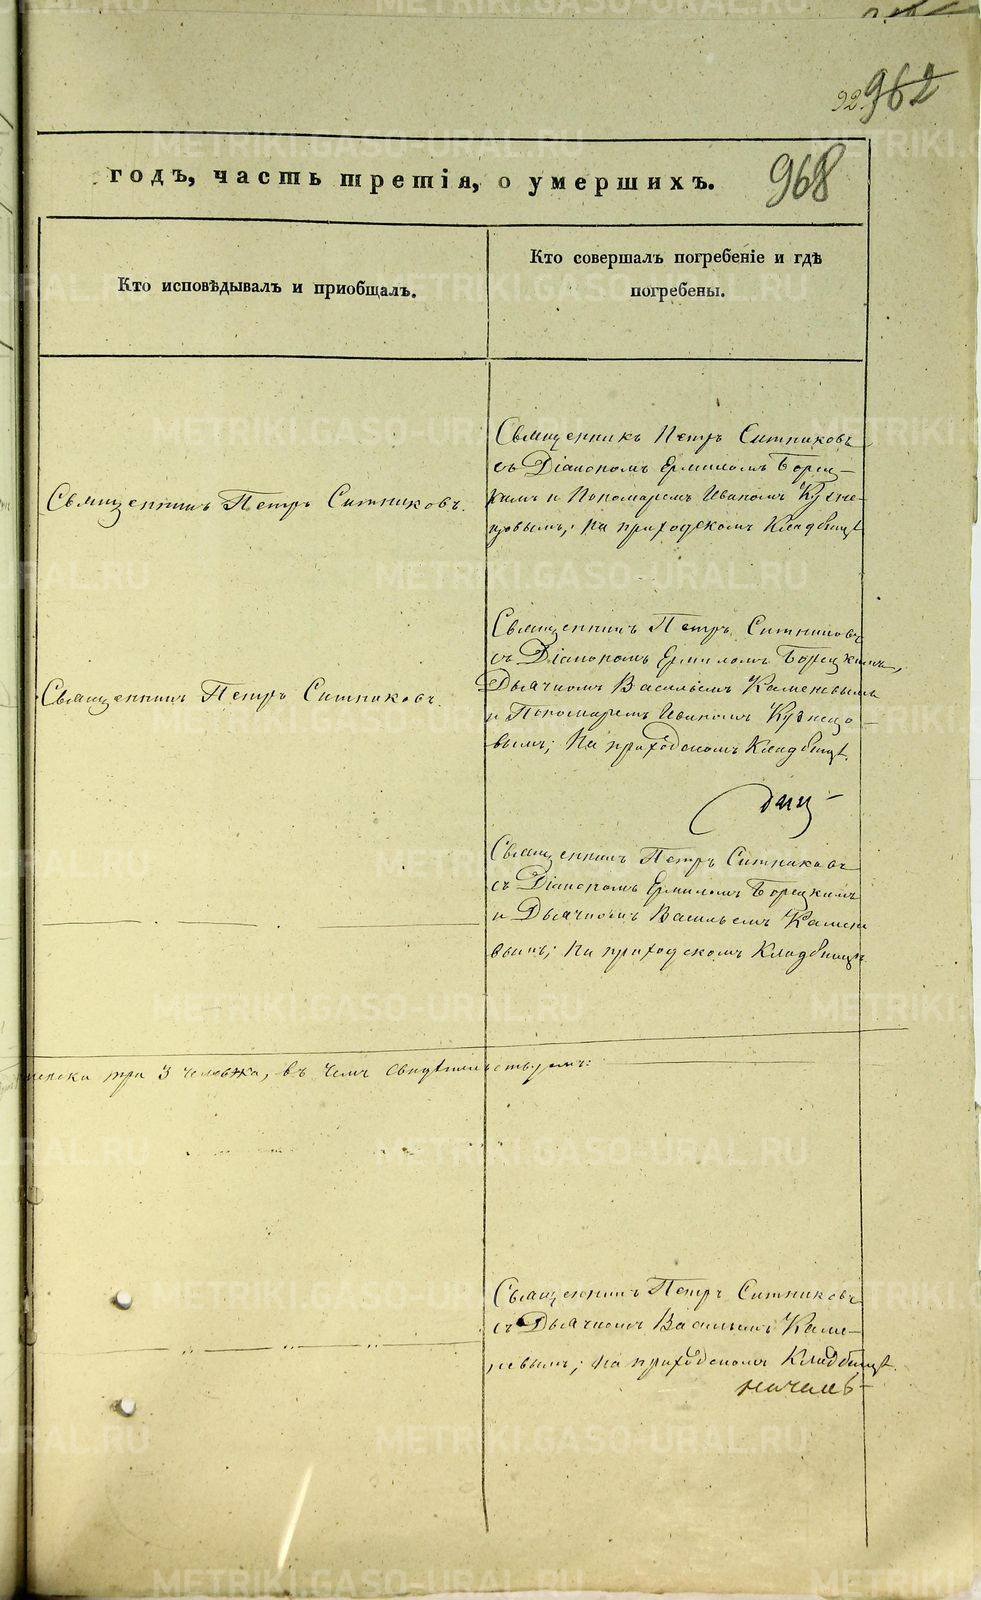 92
962
годъ, часть третія, о умершихъ.
968
Кто исповѣдывалъ и пріобщалъ.
Кто совершалъ погребеніе и гдѣ
погребены.
Священникъ Петръ Ситниковъ.
Священникъ Петръ Ситниковъ
съ Діакономъ Ермиломъ Борец-
кимъ и Пономаремъ Иваномъ Кузне-
цовымъ; на приходскомъ Кладбищѣ
Священникъ Петръ Ситниковъ.
Священникъ Петръ Ситниковъ
съ Діакономъ Ермиломъ Борецкимъ,
Дьячкомъ Васильемъ Каменевымъ
и Пономаремъ Иваномъ Кузнецо-
вымъ; На приходскомъ Кладбищѣ.
Священникъ Петръ Ситниковъ
съ Діакономъ Ермиломъ Борецкимъ
и Дьячкомъ Васильемъ Камене
вымъ; На приходскомъ Кладбищѣ
три 3 человѣка, въ чемъ свидѣтельствуемъ:
Священникъ Петръ Ситниковъ
съ Дьячкомъ Васильемъ Каме-
невымъ; на приходскомъ Кладбищѣ.
METRIKI.GASO-URAL.RU